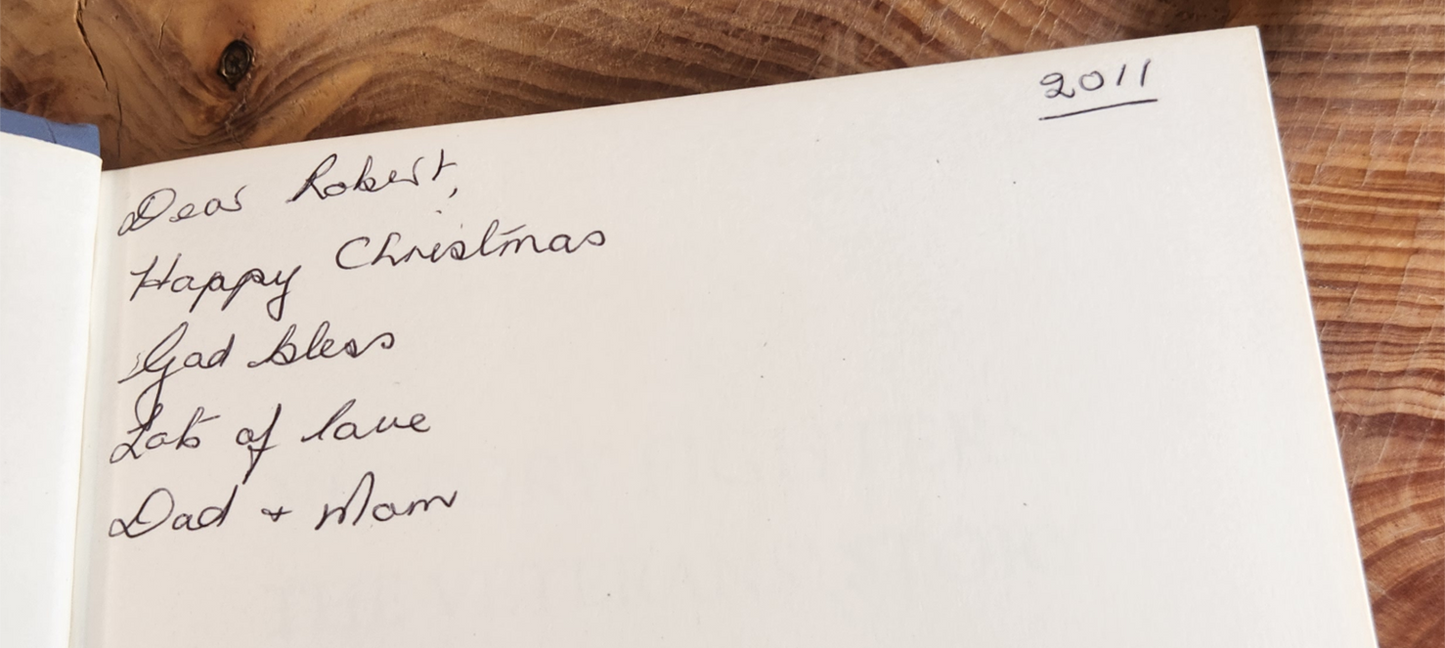 2011
Dear Robert,
Happy Christmas
God bless
Lots of love
Dad + Mam